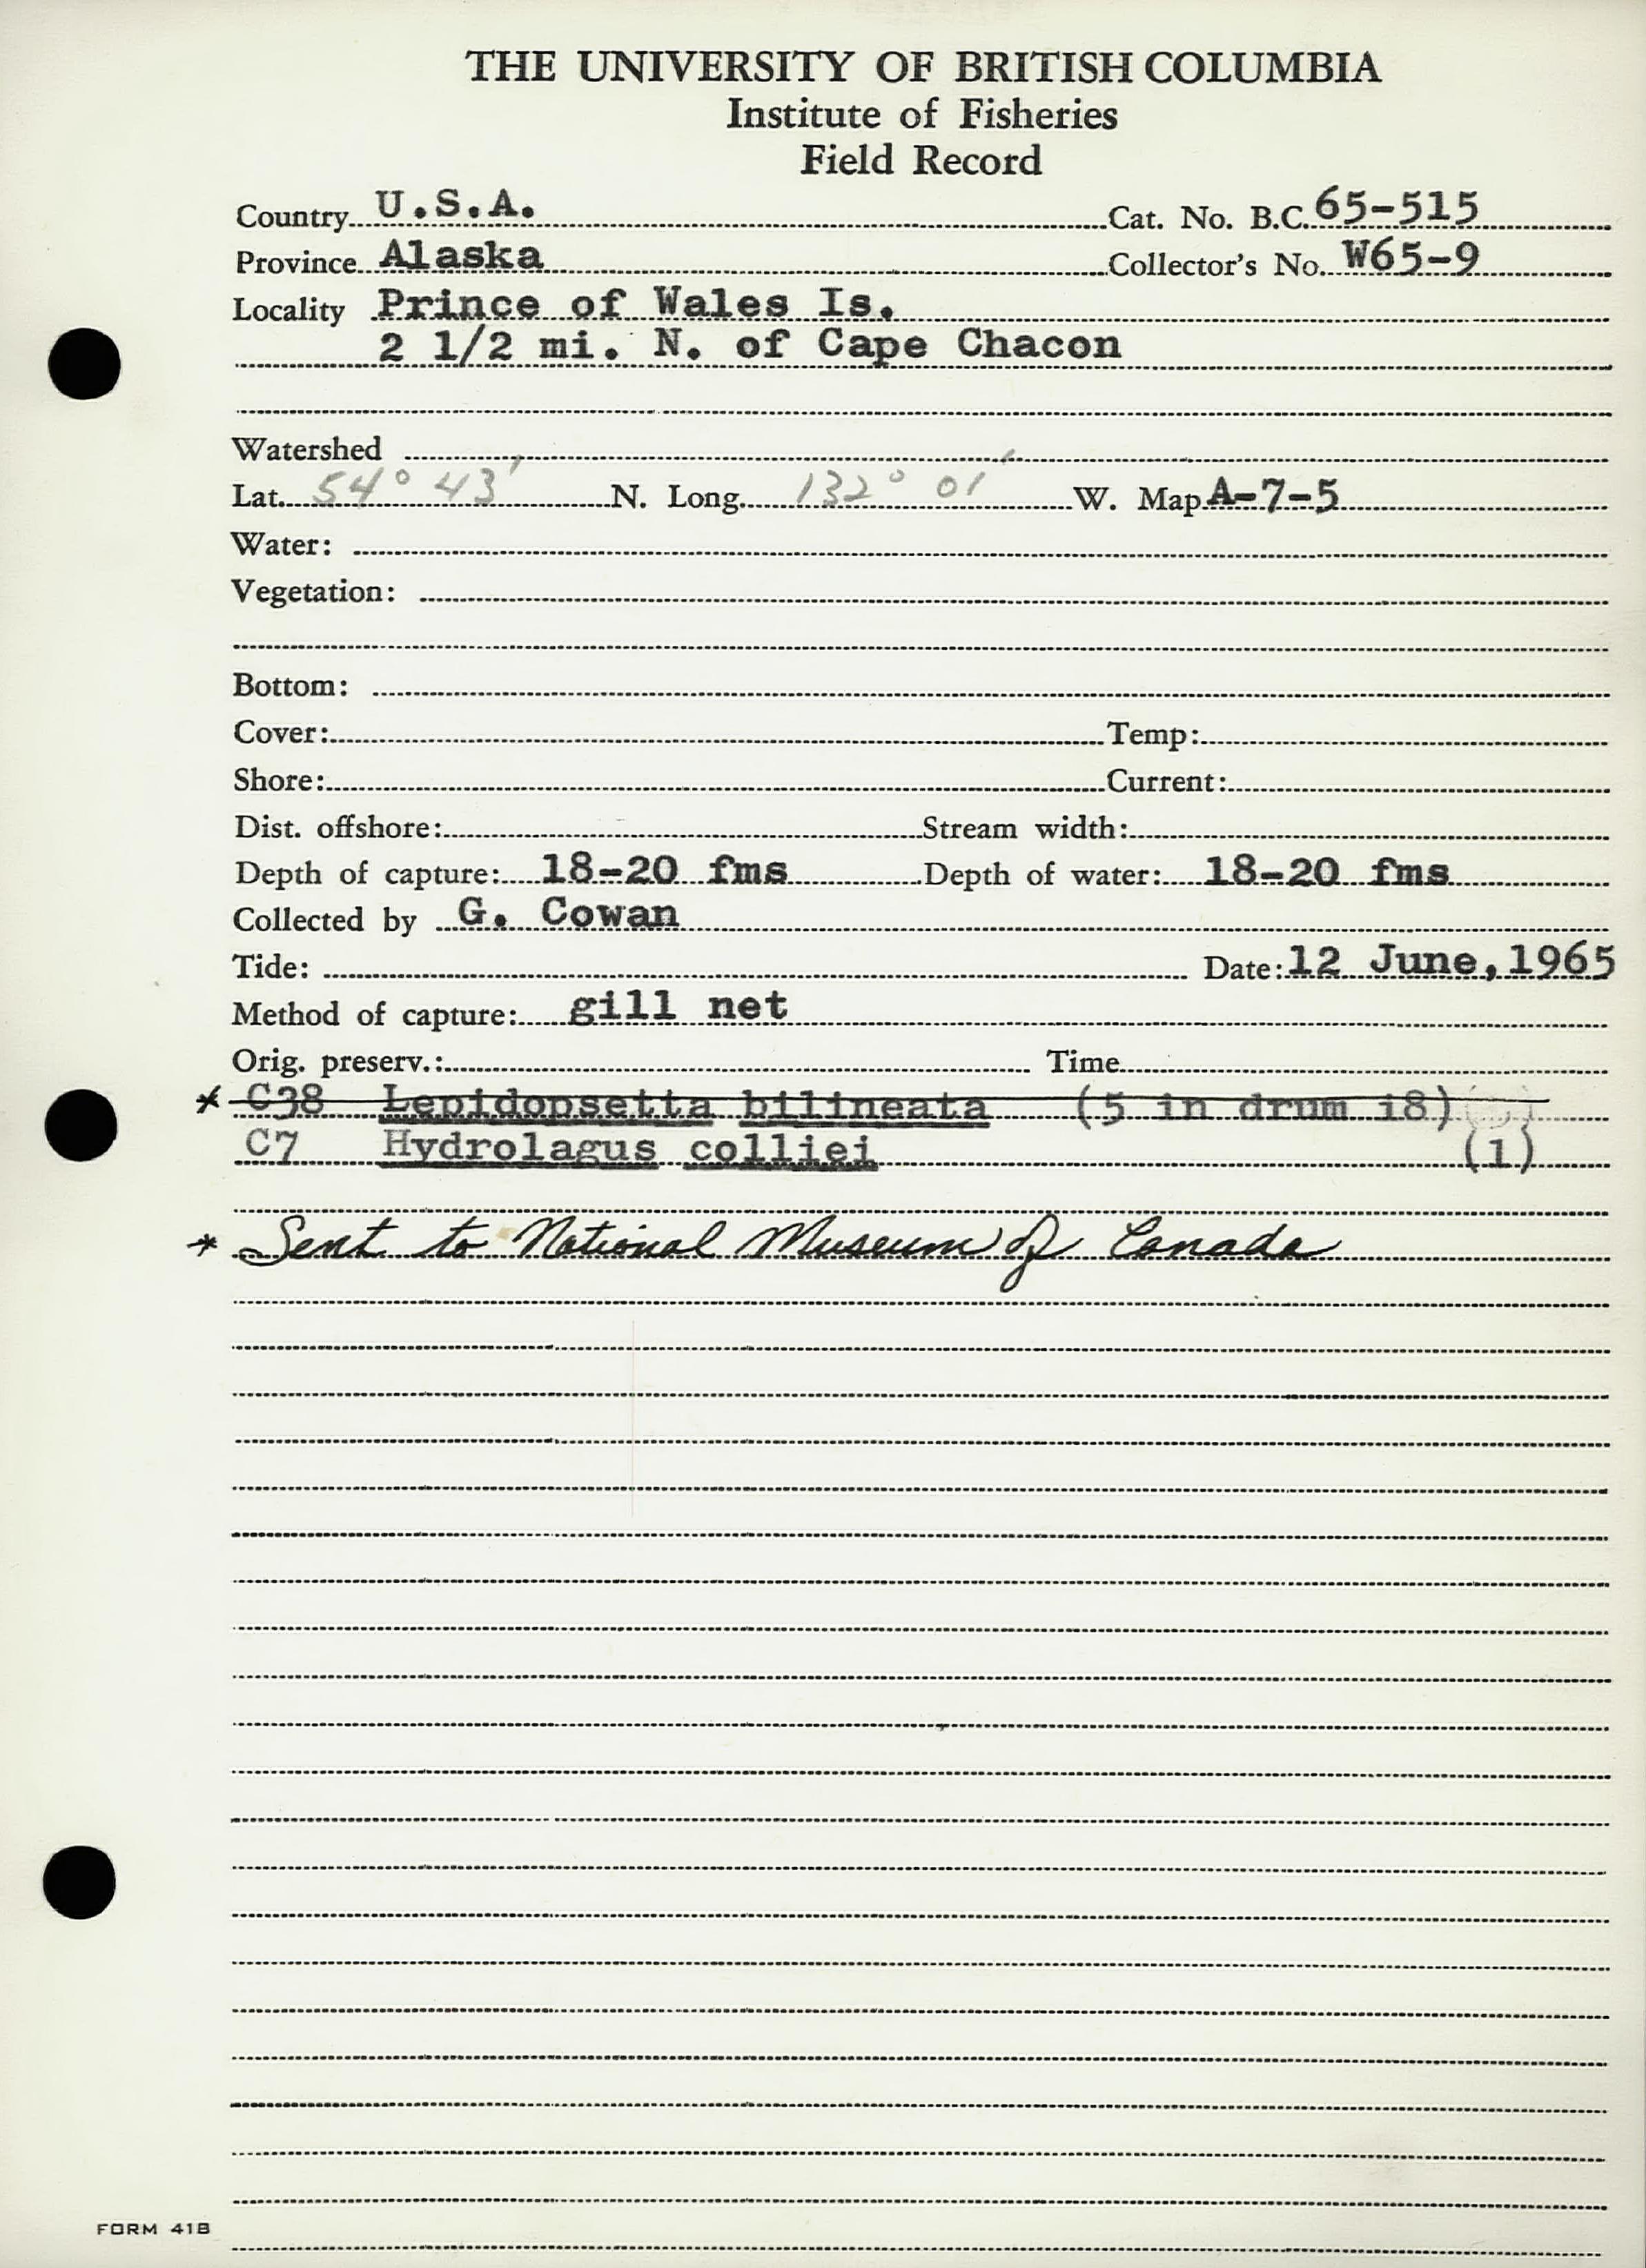 THE UNIVERSITY OF BRITISH COLUMBIA
Institute of Fisheries
Field Record
Country U.S.A. Cat. No. B.C. 65-515
Province Alaska Collector's No. W65-9
Locality Prince of Wales Is.
2 1/2 mi. N. of Cape Chacon
Watershed
Lat. 54° 43' N. Long. 132° 01' W. Map A-7-5
Water:
Vegetation:
Bottom:
Cover: Temp:
Shore: Current:
Dist. offshore: Stream width:
Depth of capture: 18-20 fms Depth of water: 18-20 fms
Collected by G. Cowan
Tide: Date: 12 June, 1965
Method of capture: gill net
Orig. preserv.: Time
* C38 Lepidopsetta bilineata (5 in drum 18)
C7 Hydrolagus colliei (1)
* Sent to National Museum of Canada
FORM 41B